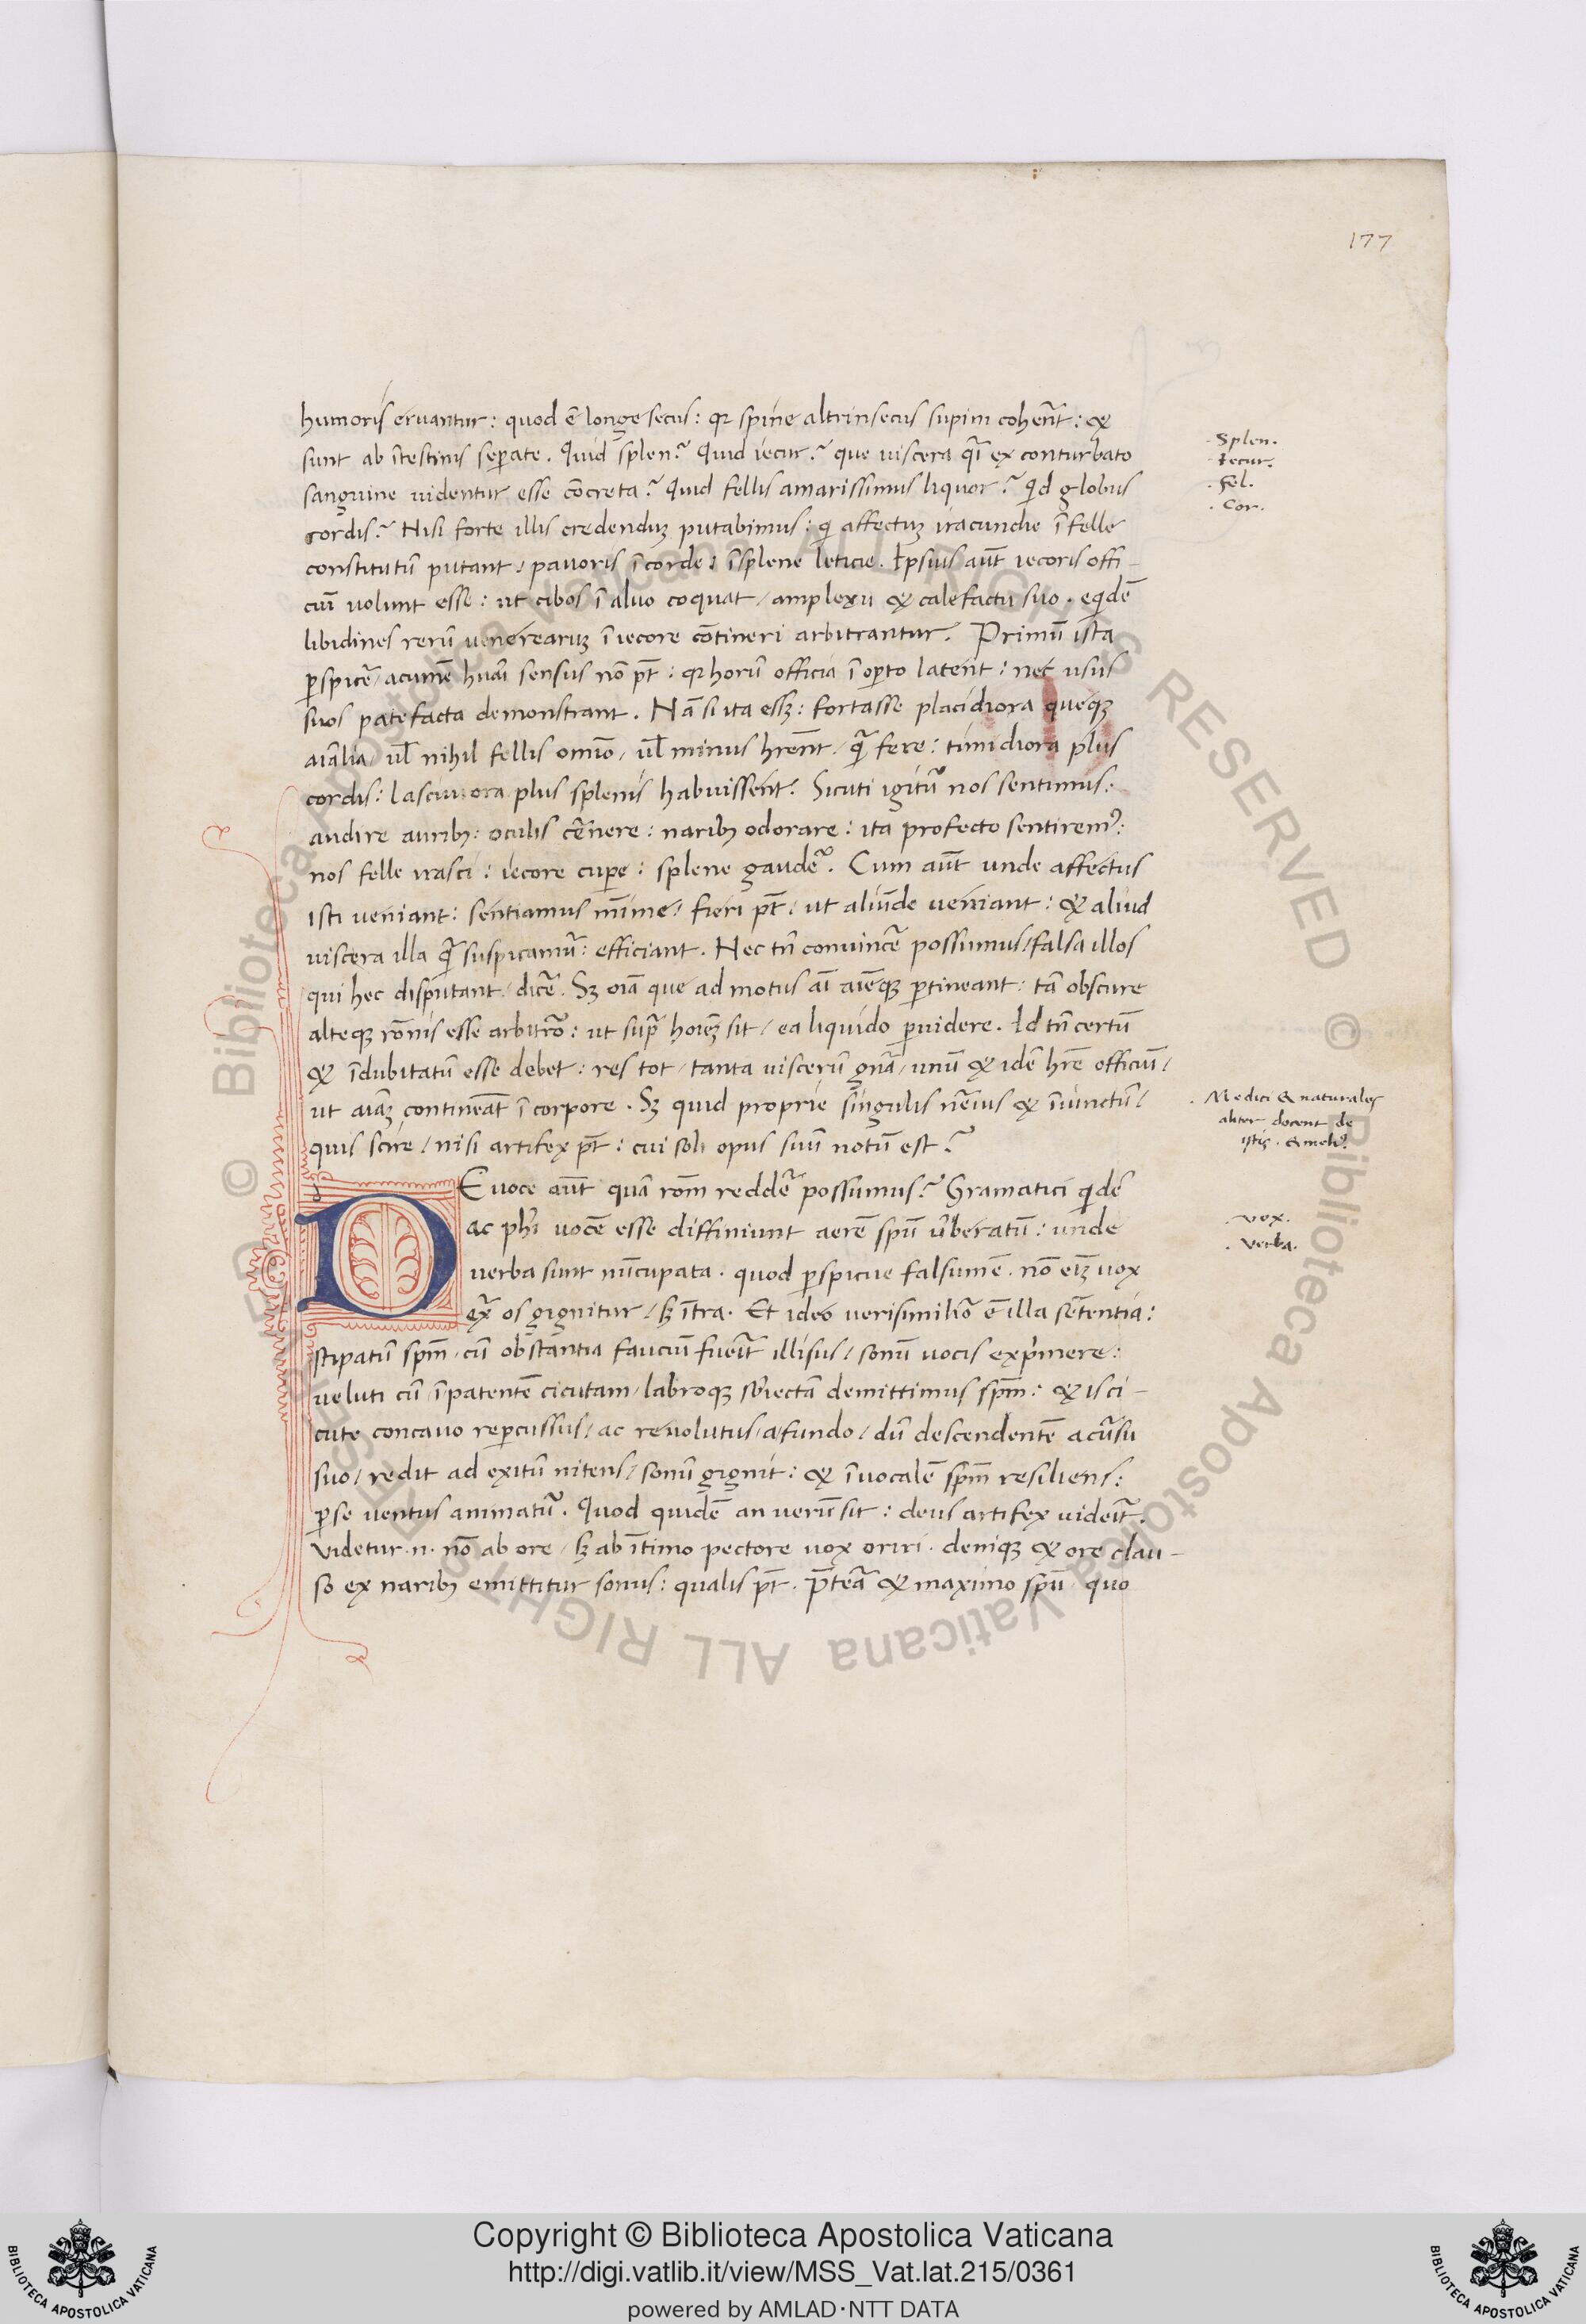 177
humoris ervantur: quod ē longe secus: qr spine altrinsecus supini coheñt: &
sunt ab ītestinis sep̄ate. Quid splen? Quid iecur? que viscera q̄i ex conturbato
sanguine videntur esse cōcreta? Quid fellis amarissimus liquor? Qid globus
cordis? Nisi forte illis credenduȝ putabimus: qi affectuȝ iracundie ī felle
constitutū putant / pavoris ī corde / ī splene leticie. Ipsius aūt iecoris offi-
ciū volunt esse: ut cibos ī alvo coquat / amplexu & calefactu suo. eqidē
libidines rerū venerearuȝ ī iecore cōtineri arbitrantur. Primū ista
p̱spicē / acumē huāi sensus nō pt̄: qr horū officia ī op̱to latent: nec usus
suos patefacta demonstrant. Nā si ita essȝ: fortasse placidiora queqȝ
aīalia / ul̄ nihil fellis omīo / ul̄ minus hr̄ent / qā fere: timidiora plus
cordis: lasciviora plus splenis habuissent. Sicuti igitr̄ nos sentimus:
audire auribȝ: oculis cernere: naribȝ odorare: ita profecto sentirem9:
nos felle irasci: iecore cup̱e: splene gaudē. Cum aūt unde affectus
isti veniant: sentiamus mīime / fieri pt̄ / ut aliūde veniant: & aliud
viscera illa qā suspicamr̄: efficiant. Nec tn̄ convincē possumus / falsa illos
qui hec disputant / dicē. Sȝ oīa que ad motus aī aīeqȝ p̱tineant: tā obscure
alteqȝ rōnis esse arbitrō: ut supā hoīeȝ sit / ea liquido p̱videre. Id tn̄ certū
& īdubitatū esse debet: res tot / tanta viscerū gn̄a / unū & idē hr̄e officiū /
ut aīaȝ contineāt ī corpore. Sȝ quid proprie singulis muneris & īiunctū /
quis scire / nisi artifex pt̄: cui soli opus suū notū est?
DE voce aūt quā rōm reddē possumus? Gramatici qidē
ac phi vocē esse diffiniunt aerē spū verberatū: unde
verba sunt nūcupata. quod p̱spicue falsum ē. nō eiȝ vox
exā os gignitur / sȝ ītra. Et ideo verisimiliō ē illa sentencia:
stipatū spm̄ / cū obstantia fauciū fuerit illisus / sonū vocis exprimere:
veluti cū ī patentē cicutam / labroqȝ sbiectā demittimus spm̄: & is ci-
cute concavo rep̱cussus / ac revolutus / a fundo / dū descendentē acursu
suo / redit ad exitū nitens / sonū gignit: & ī vocalē spm̄ resiliens:
p̱ se ventus animatr̄. Quod quidē an verū sit: deus artifex viderit.
Videtur .n. nō ab ore / sȝ ab ītimo pectore vox oriri. deniqȝ & ore clau-
so ex naribȝ emittitur sonus: qualis pt̄. P̄teā & maximo spū / quo
. Splen.
. Iecur.
. fel.
. Cor.
. Medici & naturales
aliter docent de
istis. & meli9.
. vox.
. Verba.
Copyright © Biblioteca Apostolica Vaticana
http://digi.vatlib.it/view/MSS_Vat.lat.215/0361
powered by AMLAD·NTT DATA
BIBLIOTECA APOSTOLICA VATICANA
BIBLIOTECA APOSTOLICA VATICANA